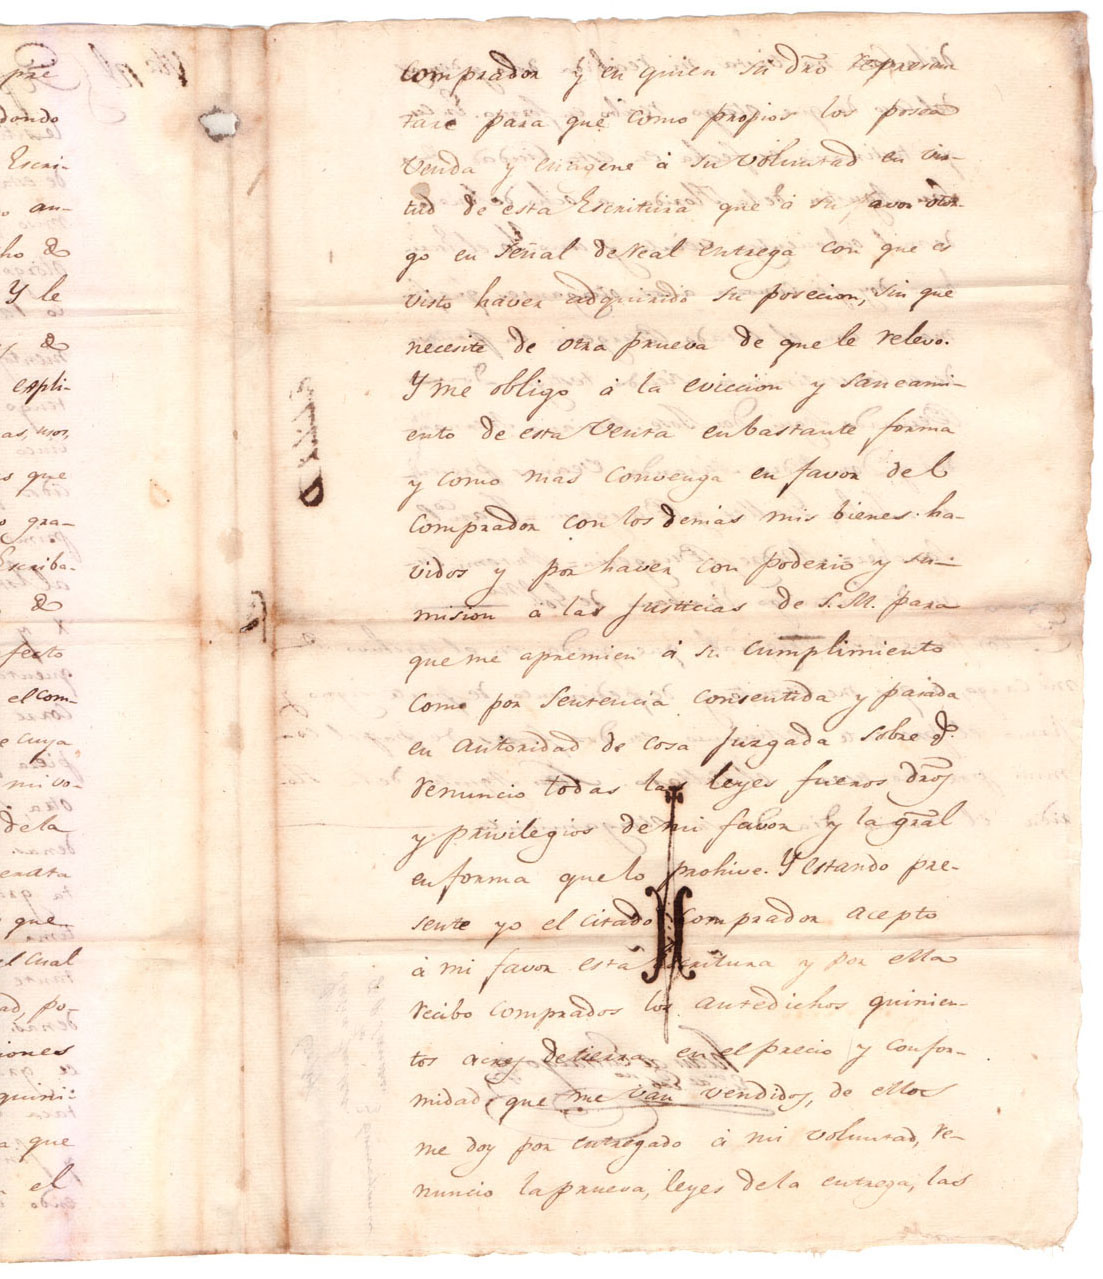 pre
dondo
Escri-
o an-
ho &
Y le
&
expli-
as, usos,
s que
o gra-
Escriba-
&
x y
fecto
el com-
e cuya
mi vo-
dela
que
el cual
ad, po-
iones
quini-
a que
el
comprador y en quien su dro represen
tare para que como propios los posea
venda y enagene á su voluntad en vir-
tud de esta Escritura que á su favor otor-
go en señal de real entrega con que es
visto haver adquirido su posecion, sin que
necesite de otra prueva de que le relevo.
Y me obligo á la eviccion y saneami-
ento de esta Venta en bastante forma
y como mas convenga en favor del
comprador con los demas mis bienes ha-
vidos y por haver con poderio y su-
mision á las Justicias de S.M. para
que me apremien á su cumplimiento
como por sentencia consentida y pasada
en autoridad de cosa juzgada sobre q.
renuncio todas las leyes fueros dros
y privilegios de mi favor y la gral
en forma que lo prohive. Y estando pre-
sente yo el citado comprador acepto
á mi favor esta Escritura y por ella
recibo comprados los antedichos quinien-
tos acres de tierra en el precio y confor-
midad que me van vendidos, de ellos
me doy por entregado á mi voluntad, re-
nuncio la prueva, leyes dela entrega, las